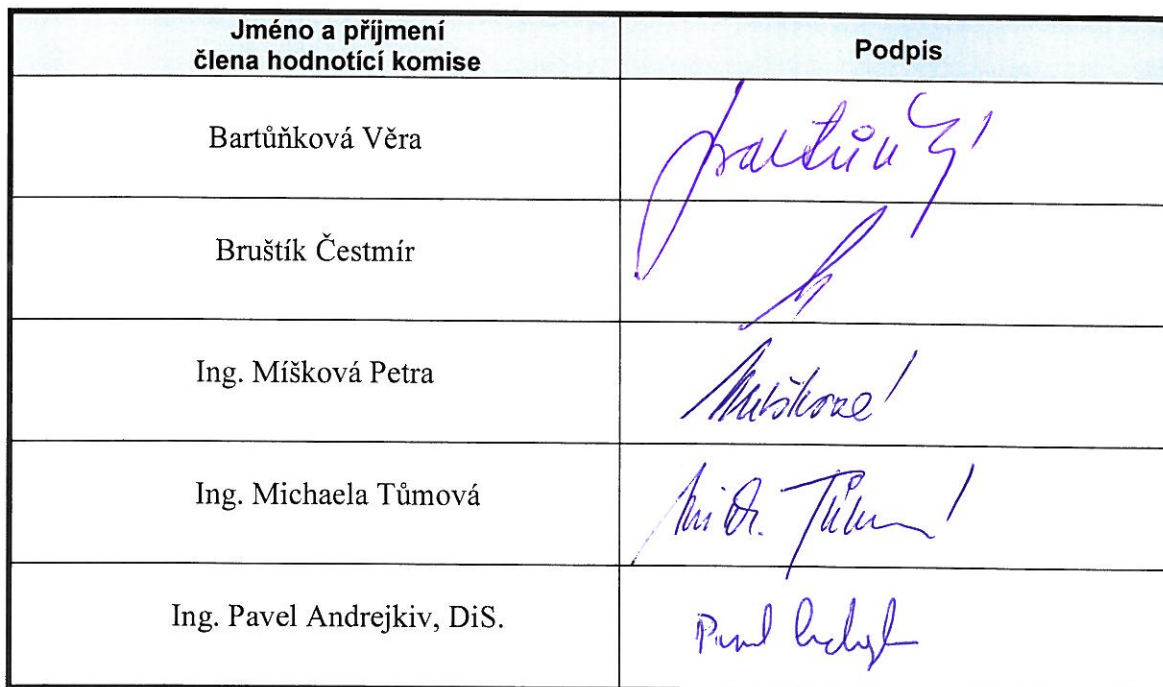 Jméno a příjmení
člena hodnotící komise
Podpis
Bartůňková Věra
Bruštík Čestmír
Ing. Míšková Petra
Míšková
Ing. Michaela Tůmová
Mich. Tůmová
Ing. Pavel Andrejkiv, DiS.
Pavel